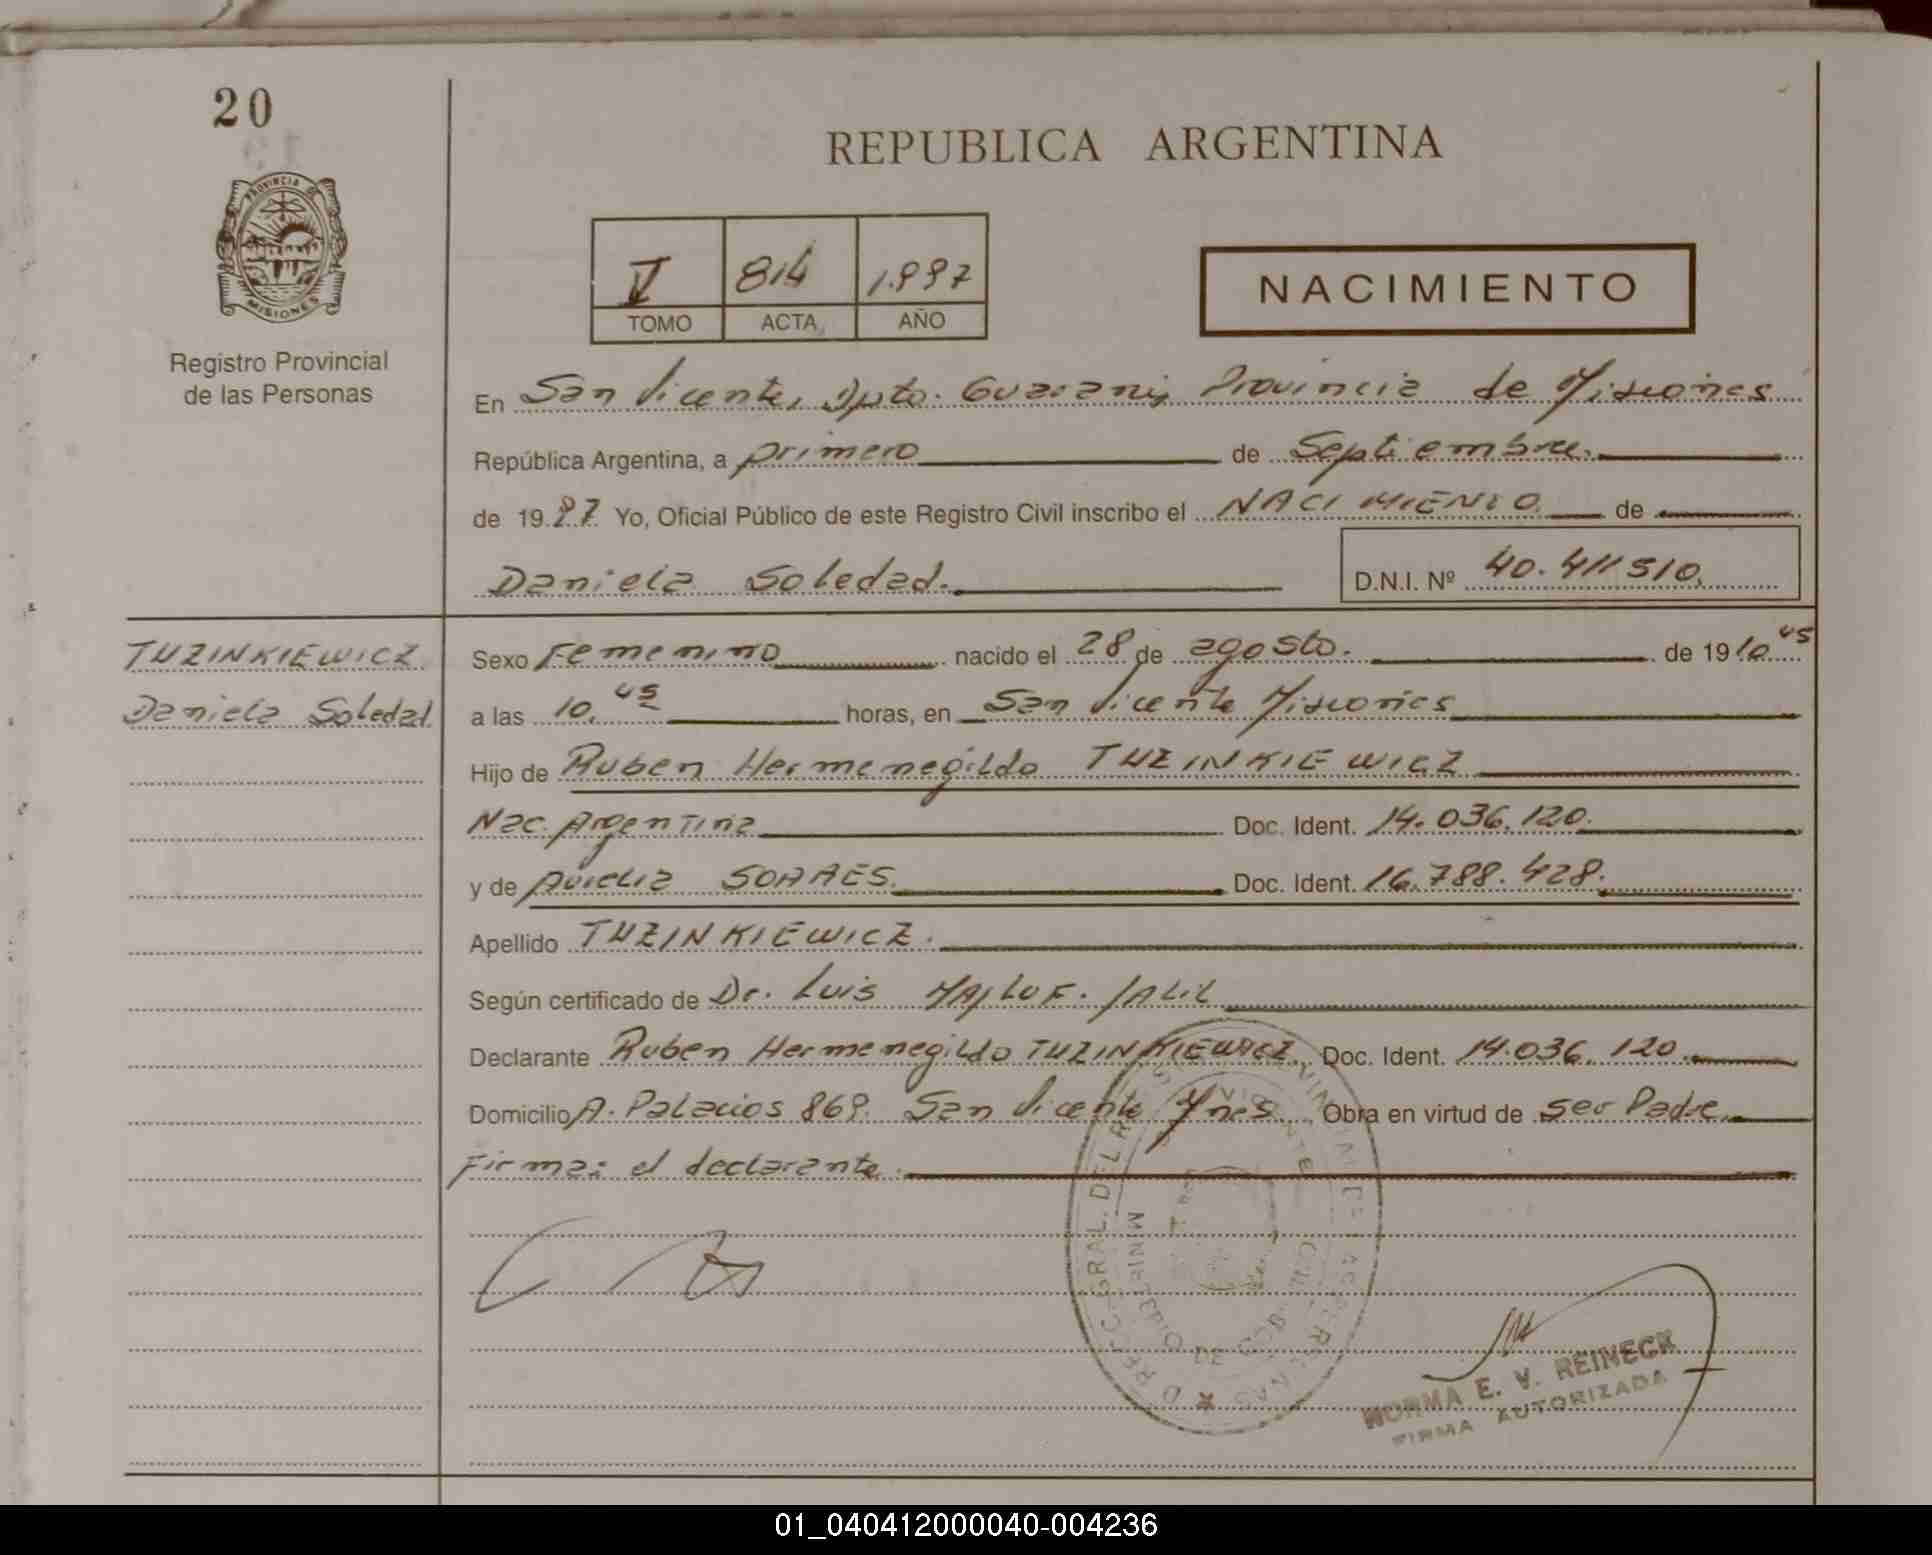 20
REPUBLICA ARGENTINA
PROVINCIA DE
MISIONES
Registro Provincial
de las Personas
V 814 1.997
TOMO ACTA AÑO
NACIMIENTO
En San Vicente, Dpto. Guarani, Provincia de Misiones
República Argentina, a primero de Septiembre.
de 1997 Yo, Oficial Público de este Registro Civil inscribo el NACIMIENTO de
Daniela Soledad. D.N.I. Nº 40.411510.
TUZINKIEWICZ
Daniela Soledad
Sexo Femenino nacido el 28 de agosto. de 19 10.45
a las 10.45 horas, en San Vicente Misiones
Hijo de Ruben Hermenegildo TUZINKIEWICZ
Nac. Argentina Doc. Ident. 14.036.120.
y de Avelia SOARES. Doc. Ident. 16.788.428.
Apellido TUZINKIEWICZ.
Según certificado de Dr. Luis MAJLUF. JALIL
Declarante Ruben Hermenegildo TUZINKIEWICZ, Doc. Ident. 14.036.120.
Domicilio A. Palacios 869. San Vicente Mnes Obra en virtud de ser Padre.
Firma: el declarante.
NORMA E. V. REINECK
FIRMA AUTORIZADA
01_040412000040-004236